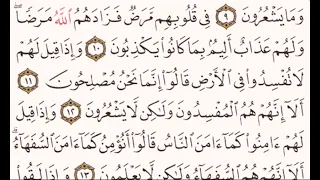 وَمَا يَشْعُرُونَ ٩ فِي قُلُوبِهِم مَّرَضٌ فَزَادَهُمُ ٱللَّهُ مَرَضًاۖ
وَلَهُمْ عَذَابٌ أَلِيمُۢ بِمَا كَانُوا۟ يَكْذِبُونَ ١٠ وَإِذَا قِيلَ لَهُمْ
لَا تُفْسِدُوا۟ فِي ٱلْأَرْضِ قَالُوٓا۟ إِنَّمَا نَحْنُ مُصْلِحُونَ ١١
أَلَآ إِنَّهُمْ هُمُ ٱلْمُفْسِدُونَ وَلَـٰكِن لَّا يَشْعُرُونَ ١٢ وَإِذَا قِيلَ
لَهُمْ ءَامِنُوا۟ كَمَآ ءَامَنَ ٱلنَّاسُ قَالُوٓا۟ أَنُؤْمِنُ كَمَآ ءَامَنَ ٱلسُّفَهَآءُۗ
أَلَآ إِنَّهُمْ هُمُ ٱلسُّفَهَآءُ وَلَـٰكِن لَّا يَعْلَمُونَ ١٣ وَإِذَا لَقُوا۟